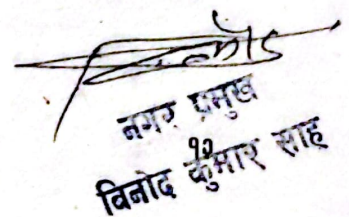 नगर प्रमुख
विनोद कुमार साह